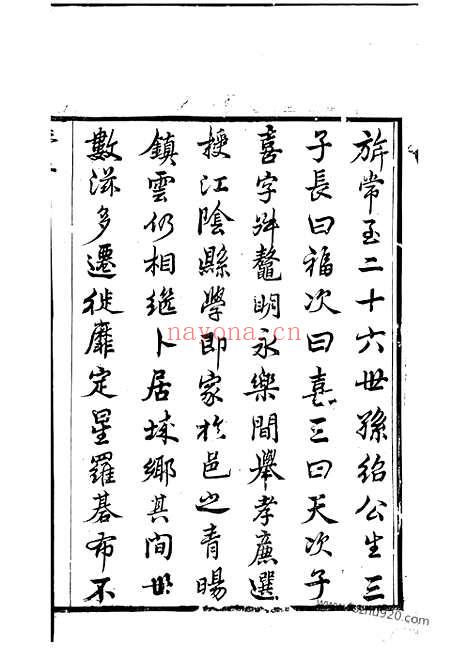 旂常至二十六世孫紹公生三
子長曰福次曰喜三曰天次子
喜字舜鼇明永樂間舉孝廉選
授江陰縣學即家於邑之青暘
鎮雲仍相繼卜居城鄉其間世
數滋多遷徙靡定星羅碁布不
nayona.cn